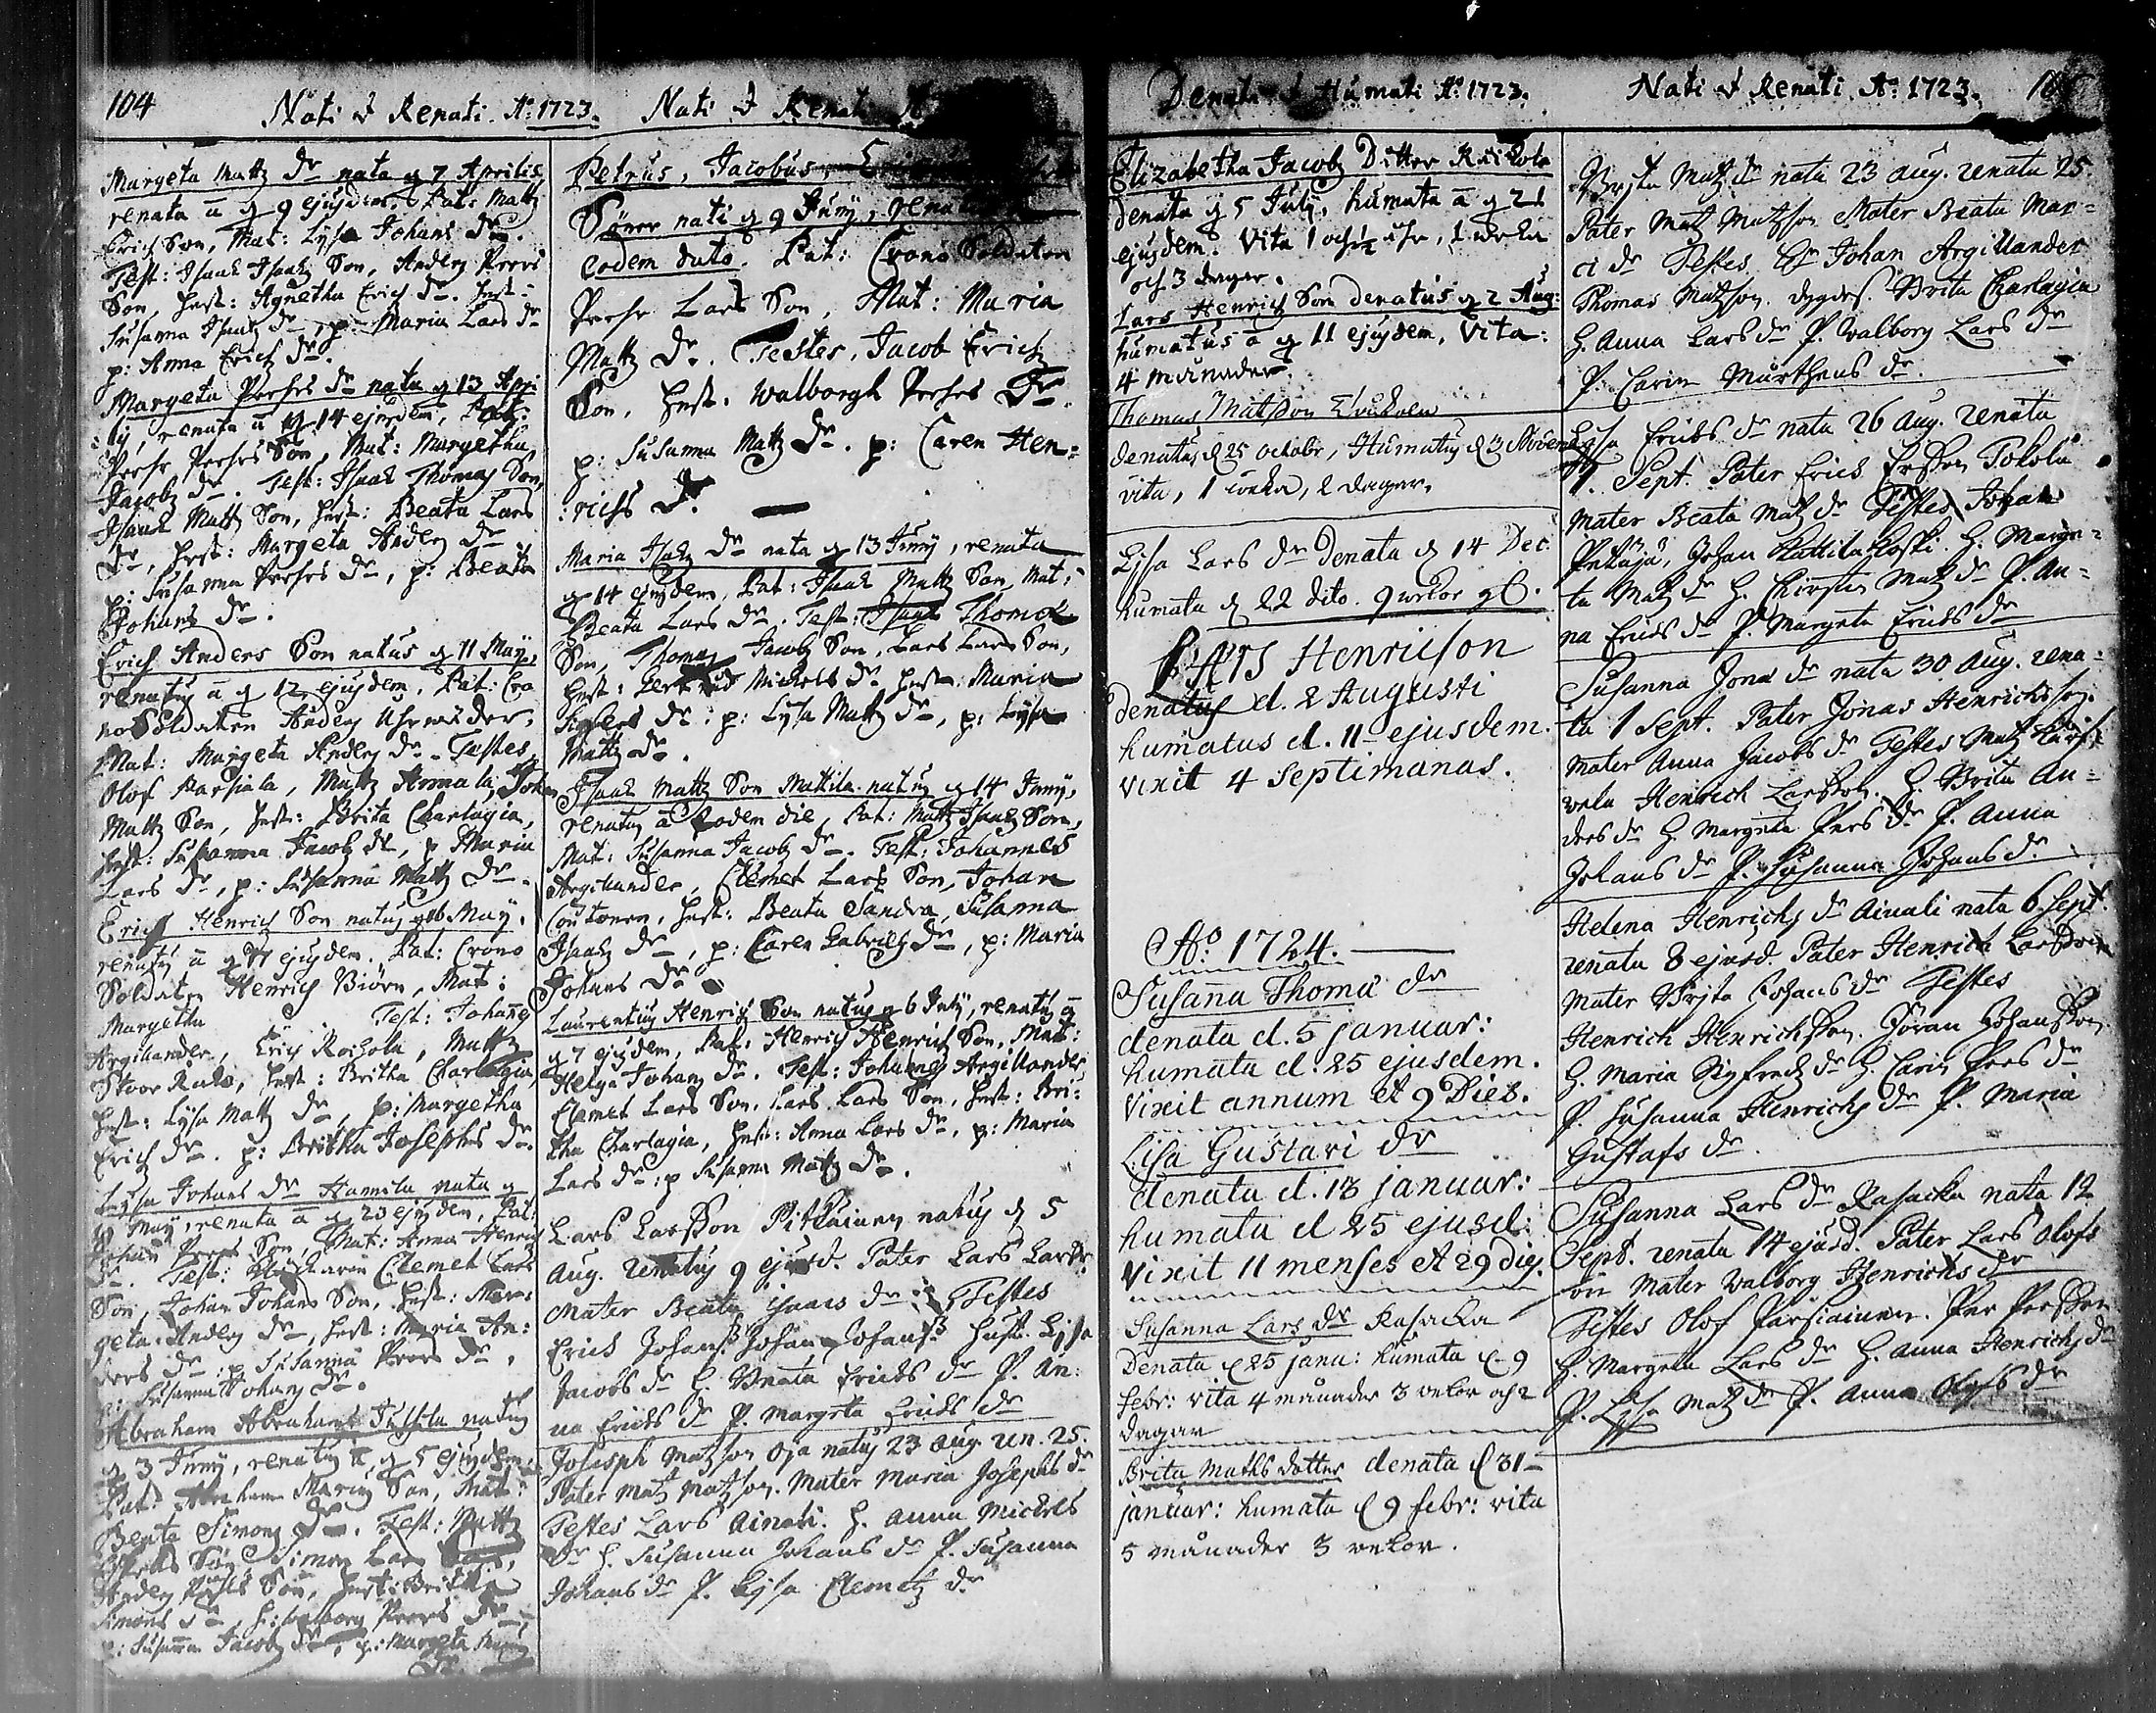 104 Nati & Renati. Ao: 1723.
Margeta Mattz Dr nata d 7 Aprilis
renata ā d 9 ejusdem, Pat: Mattz
Erich Son, Mat: Lÿsa Johans Dr.
Test: Isaak Isaakz Son, Anders Peers
Son, hust: Agnetha Erichz Dr. hust:
Susanna Isaakz Dr, p: Maria Lars Dr
p: Anna Erichz Dr.
Margeta Peehrs Dr nata d 13 Apri
lij, renata ā d 14 ejusdem, Pat:
Peehr Peehrs Son, Mat: Margetha
Jacobz Dr. Test: Isaak Thomas Son,
Isaak Mattz Son, hust: Beata Lars
Dr, hust: Margeta Anders Dr
p: Susanna Peehrs Dr, p: Beata
Johans Dr.
Erich Anders Son natus d 11 Maÿ,
renatus ā d 12 ejusdem, Pat: Cro
no Soldaten Anders
Mat: Margeta Anders Dr. Testes,
Olof Parsiala, Mattz Annala, Johan
Mattz Son, hust: Brita Charlagia,
hust: Susanna Jacobz Dr, p Maria
Lars Dr, p: Susanna Mattz Dr.
Erich Henrich Son natus d 16 Maÿ,
renatus ā d 17 ejusdem. Pat: Crono
Soldaten Henrich Biörn, Mat:
Margetha Test: Johanes
Argillander, Erich Koikola, Mattz
Stoor Rako, hust: Britha Charlagia
hust: Lÿsa Mattz Dr, p: Margetha
Erich Dr. p: Britha Josephs Dr.
Lÿsa Johans Dr Hannila nata d
Maÿ, renata ā d 23 ejusdem, Pat:
Johan Peers Son, Mat: Anna Henrich
Dr. Test: Clemet Lars
Son, Johan Johans Son, hust: Mar:
geta Anders Dr, hust: Maria An:
ders Dr: p Susanna Peers Dr,
p: Susanna Johans Dr.
Abraham Abrahams natus
d 3 Junij, renatus ā d 5 ejusdem
Pat: Abraham Son, Mat:
Beata Simons Dr. Test: Mattz
Son Simon Lars
Anders Son, hust: Britha
Simons Dr, h: Walborg Peers Dr,
p: Susanna Jacobz Dr, p: Margeta
Dr.
Nati & Renati
Petrus, Jacobus,
Söner nati d 9 Junij,
eodem dato. Pat: Crono Soldaten
Peehr Lars Son, Mat: Maria
Mattz Dr. Testes, Jacob Erich
Son, hust. Walborgh Peehrs Dr.
p: Susanna Mattz Dr. p: Caren Hen:
:richs Dr.
Maria Isakz Dr nata d 13 Junij, renata
d 14 ejusdem, Pat: Isaak Mattz Son, Mat:
Beata Lars Dr. Test: Isaak Thomæ
Son, Thomas Jacobz Son, Lars Lars Son,
hust: Gertrud Michels Dr hust: Maria
Dr: p: Lÿsa Mattz Dr, p: Lÿsa
Mattz Dr.
Isaak Mattz Son Mattila natus d 14 Junij,
renatus ā eodem die, Pat: Mattz Isaakz Son,
Mat: Susanna Jacobz Dr. Test: Johannes
Argillander, Clemet Lars Son, Johan
hust: Beata Sandra, Susanna
Isaakz Dr, p: Caren Gabriels Dr, p: Maria
Johans Dr
Laurentius Henrich Son natus d 6 Julij, renatus ā
d 7 ejusdem, Pat: Henrich Henrich Son, Mat:
Helga Johans Dr. Test: Johannes Argillander
Clemet Lars Son, Lars Lars Son, hust: Bri:
tha Charlagia, hust: Anna Lars Dr, p: Maria
Lars Dr: p Susanna Mattz Dr.
Lars Larsson Pitkäinen natus d 5
Aug. renatus 9 ejusd. Pater Lars Larss.
Mater Beata Isaacs dr Testes
Erich Johanss Johan Johanss hust. Lisa
Jacobs dr Beata Erichs dr P. An:
na Erichs dr P. Margeta Erichs dr
Joseph Matzson Oja natus 23 Aug. ren. 25.
Pater Matz Matzson. Mater Maria Josephs dr
Testes Lars Ainali. H. Anna Michels
dr H. Susanna Johans dr P. Susanna
Johans dr P. Lisa Clemetz dr
Denati & Humati Ao: 1723.
Elizabetha Jacobz Dotter Koikola
denata d 5 Julij, humata ā d 21
ejusdem. Vita 1 och ½ åhr, 1 weka
och 3 dagar.
Lars Henrich Son denatus d 2 Aug:
humatus ā d 11 ejusdem, Vita:
4 månader.
Thomas Matsson
denatus d 25 octobr, Humatus d 3 Novemb.
vita, 1 weka, 2 dagar.
Lisa Lars dr Denata d 14 Dec.
humata d 22 dito. 9 wekor gl.
LARS Henricson
denatus d. 2 Augusti
humatus d. 11 ejusdem.
vixit 4 septimanas.
Ao: 1724.
Susanna Thomæ dr
denata d. 5 januar:
humata d. 25 ejusdem.
Vixit annum et 9 Dies.
Lisa Gustavi dr
denata d. 18 januar:
humata d 25 ejusd:
vixit 11 menses et 29 dies.
Susanna Lars dr Rasacka
Denata d 25 janu: humata d 9
febr: vita 4 månader 3 vekor och 2
dagar
Brita Maths dotter denata d 31
januar: humata d 9 febr: vita
5 månader 3 vekor.
Nati & Renati Ao: 1723. 105
Brita Matz dr nata 23 Aug. renata 25.
Pater Matz Matzson Mater Beata Mar=
ci dr Testes Hr Johan Argillander
Thomas Matzson. Brita Charlagia
H. Anna Lars dr P. Walborg Lars dr
P. Carin Mårthens dr.
Lisa Erichs dr nata 26 Aug. renata
1. Sept. Pater Erich Ersson Tokola
Mater Beata Matz dr Testes Johan
Petäjä, Johan Kattilakoski. H. Marge=
ta Matz dr H. Kirstin Matz dr P. An=
na Erichs dr P. Margeta Erichs dr
Susanna Jonæ dr nata 30 Aug. rena=
ta 1 Sept. Pater Jonas Henrichsson.
Mater Anna Jacobs dr Testes Matz
Henrich Larsson. H. Brita An=
ders dr H. Margeta Pers dr P. Anna
Johans dr P. Susanna Johans dr
Helena Henrichs dr Ainali nata 6 Sept.
renata 8 ejusd. Pater Henrich Larsson
Mater Brita Johans dr Testes
Henrich Henrichsson. Göran Johansson
H. Maria Sigfredz dr H. Carin Pers dr
P. Susanna Henrichs dr P. Maria
Gustafs dr.
Susanna Lars dr Rasacka nata 12
Sept. renata 14 ejusd. Pater Lars Olofs
son Mater Walborg Henrichs dr
Testes Olof Parsiainen. Per Persson
H. Margeta Lars dr H. Anna Henrichs dr
P. Lisa Matz dr P. Anna Olofs dr